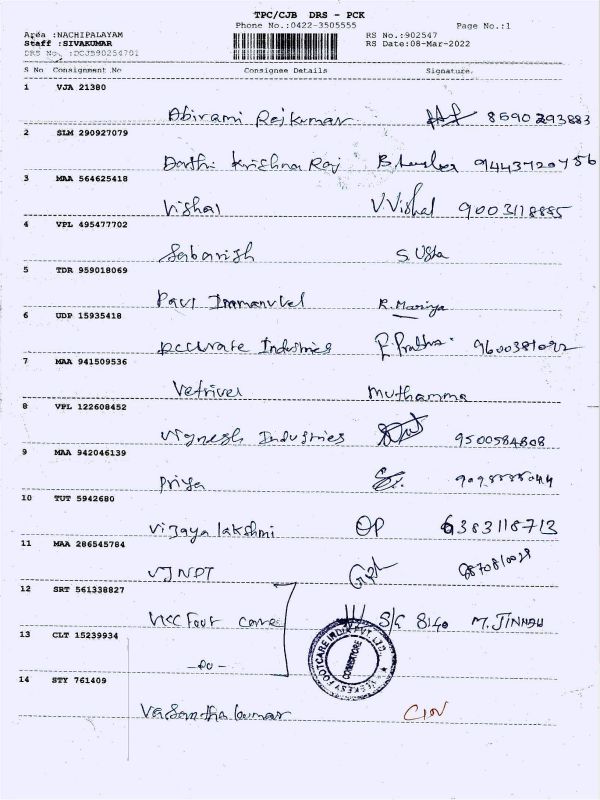 TPC/CJB DRS - PCK
Phone No.:0422-3505555 Page No.:1
Area :NACHIPALAYAM RS No.:902547
Staff :SIVAKUMAR RS Date:08-Mar-2022
DRS No. :DCJB90254701
S No Consignment No Consignee Details Signature.
1 VJA 21380
Abirami Rajkumar 8590293883
2 SLM 290927079
Krishna Raj 9443720756
3 MAA 564625418
Vishal V.Vishal 9003118885
4 VPL 495477702
Sabarish S. Usha
5 TDR 959018069
Paul Immanuvel R. Mariya
6 UDP 15935418
Accurate Industries
7 MAA 941509536
Vetrivel Muthamma
8 VPL 122608452
Vignesh Industries 9500584808
9 MAA 942046139
Priya
10 TUT 5942680
Vijaya lakshmi OP 6383118713
11 MAA 286545784
VJNPT
12 SRT 561338827
VKC Foot care S/G 8140 M. JINNAH
13 CLT 15239934
- DO -
14 STY 761409
Vasantha kumar
FOOTCARE INDIA PVT. LTD.
COIMBATORE